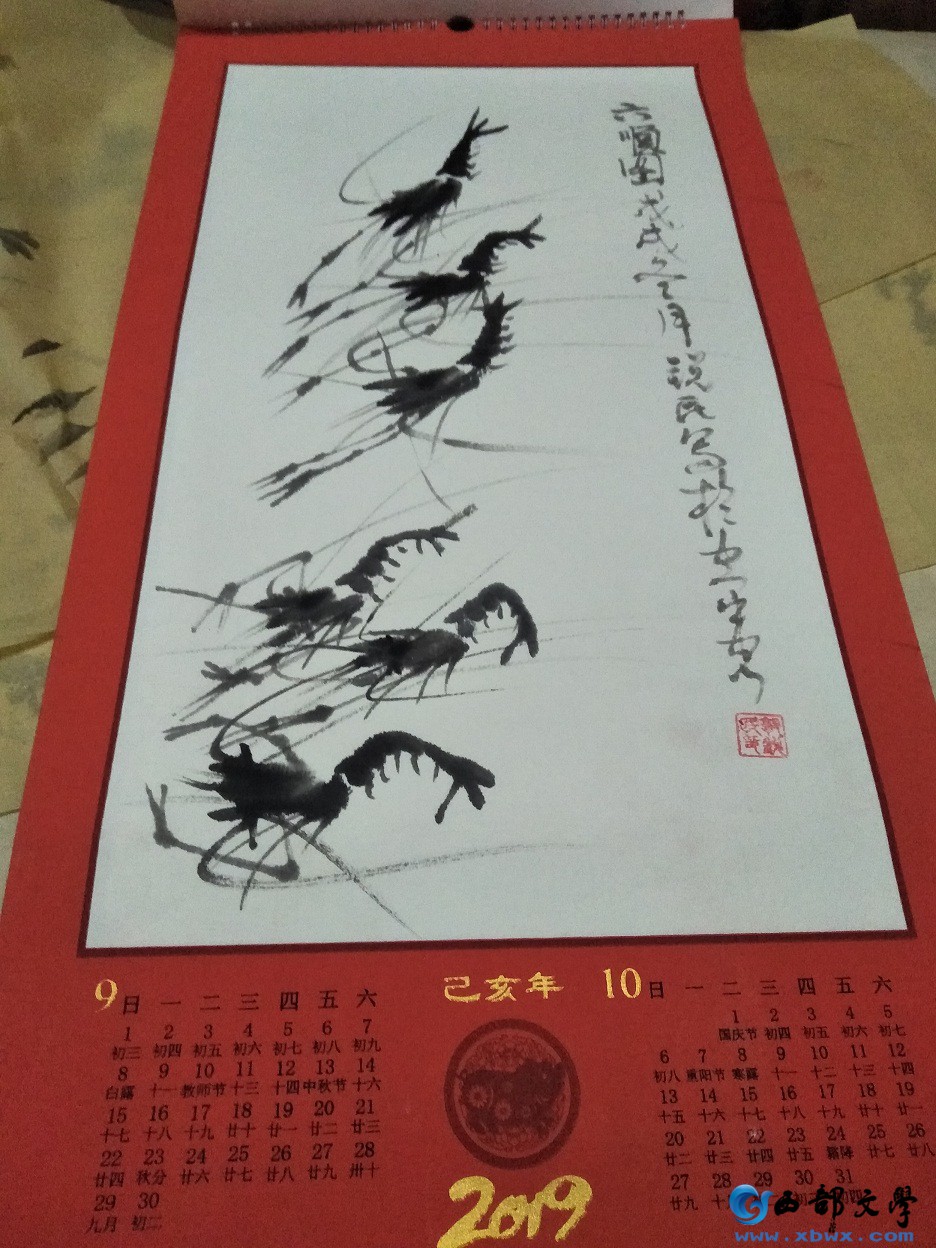 六順图戊戌冬月
己亥年
9 日 一 二 三 四 五 六
1 2 3 4 5 6 7
初三 初四 初五 初六 初七 初八 初九
8 9 10 11 12 13 14
白露 十一 教师节 十三 十四 中秋节 十六
15 16 17 18 19 20 21
十七 十八 十九 廿十 廿一 廿二 廿三
22 23 24 25 26 27 28
廿四 秋分 廿六 廿七 廿八 廿九 卅十
29 30
九月 初二
10 日 一 二 三 四 五 六
1 2 3 4 5
国庆节 初四 初五 初六 初七
6 7 8 9 10 11 12
初八 重阳节 寒露 十一 十二 十三 十四
13 14 15 16 17 18 19
十五 十六 十七 十八 十九 廿十 廿一
20 21 22 23 24 25 26
廿二 廿三 廿四 廿五 霜降 廿七 廿八
27 28 29 30 31
廿九
2019
西部文學
www.xbwx.com